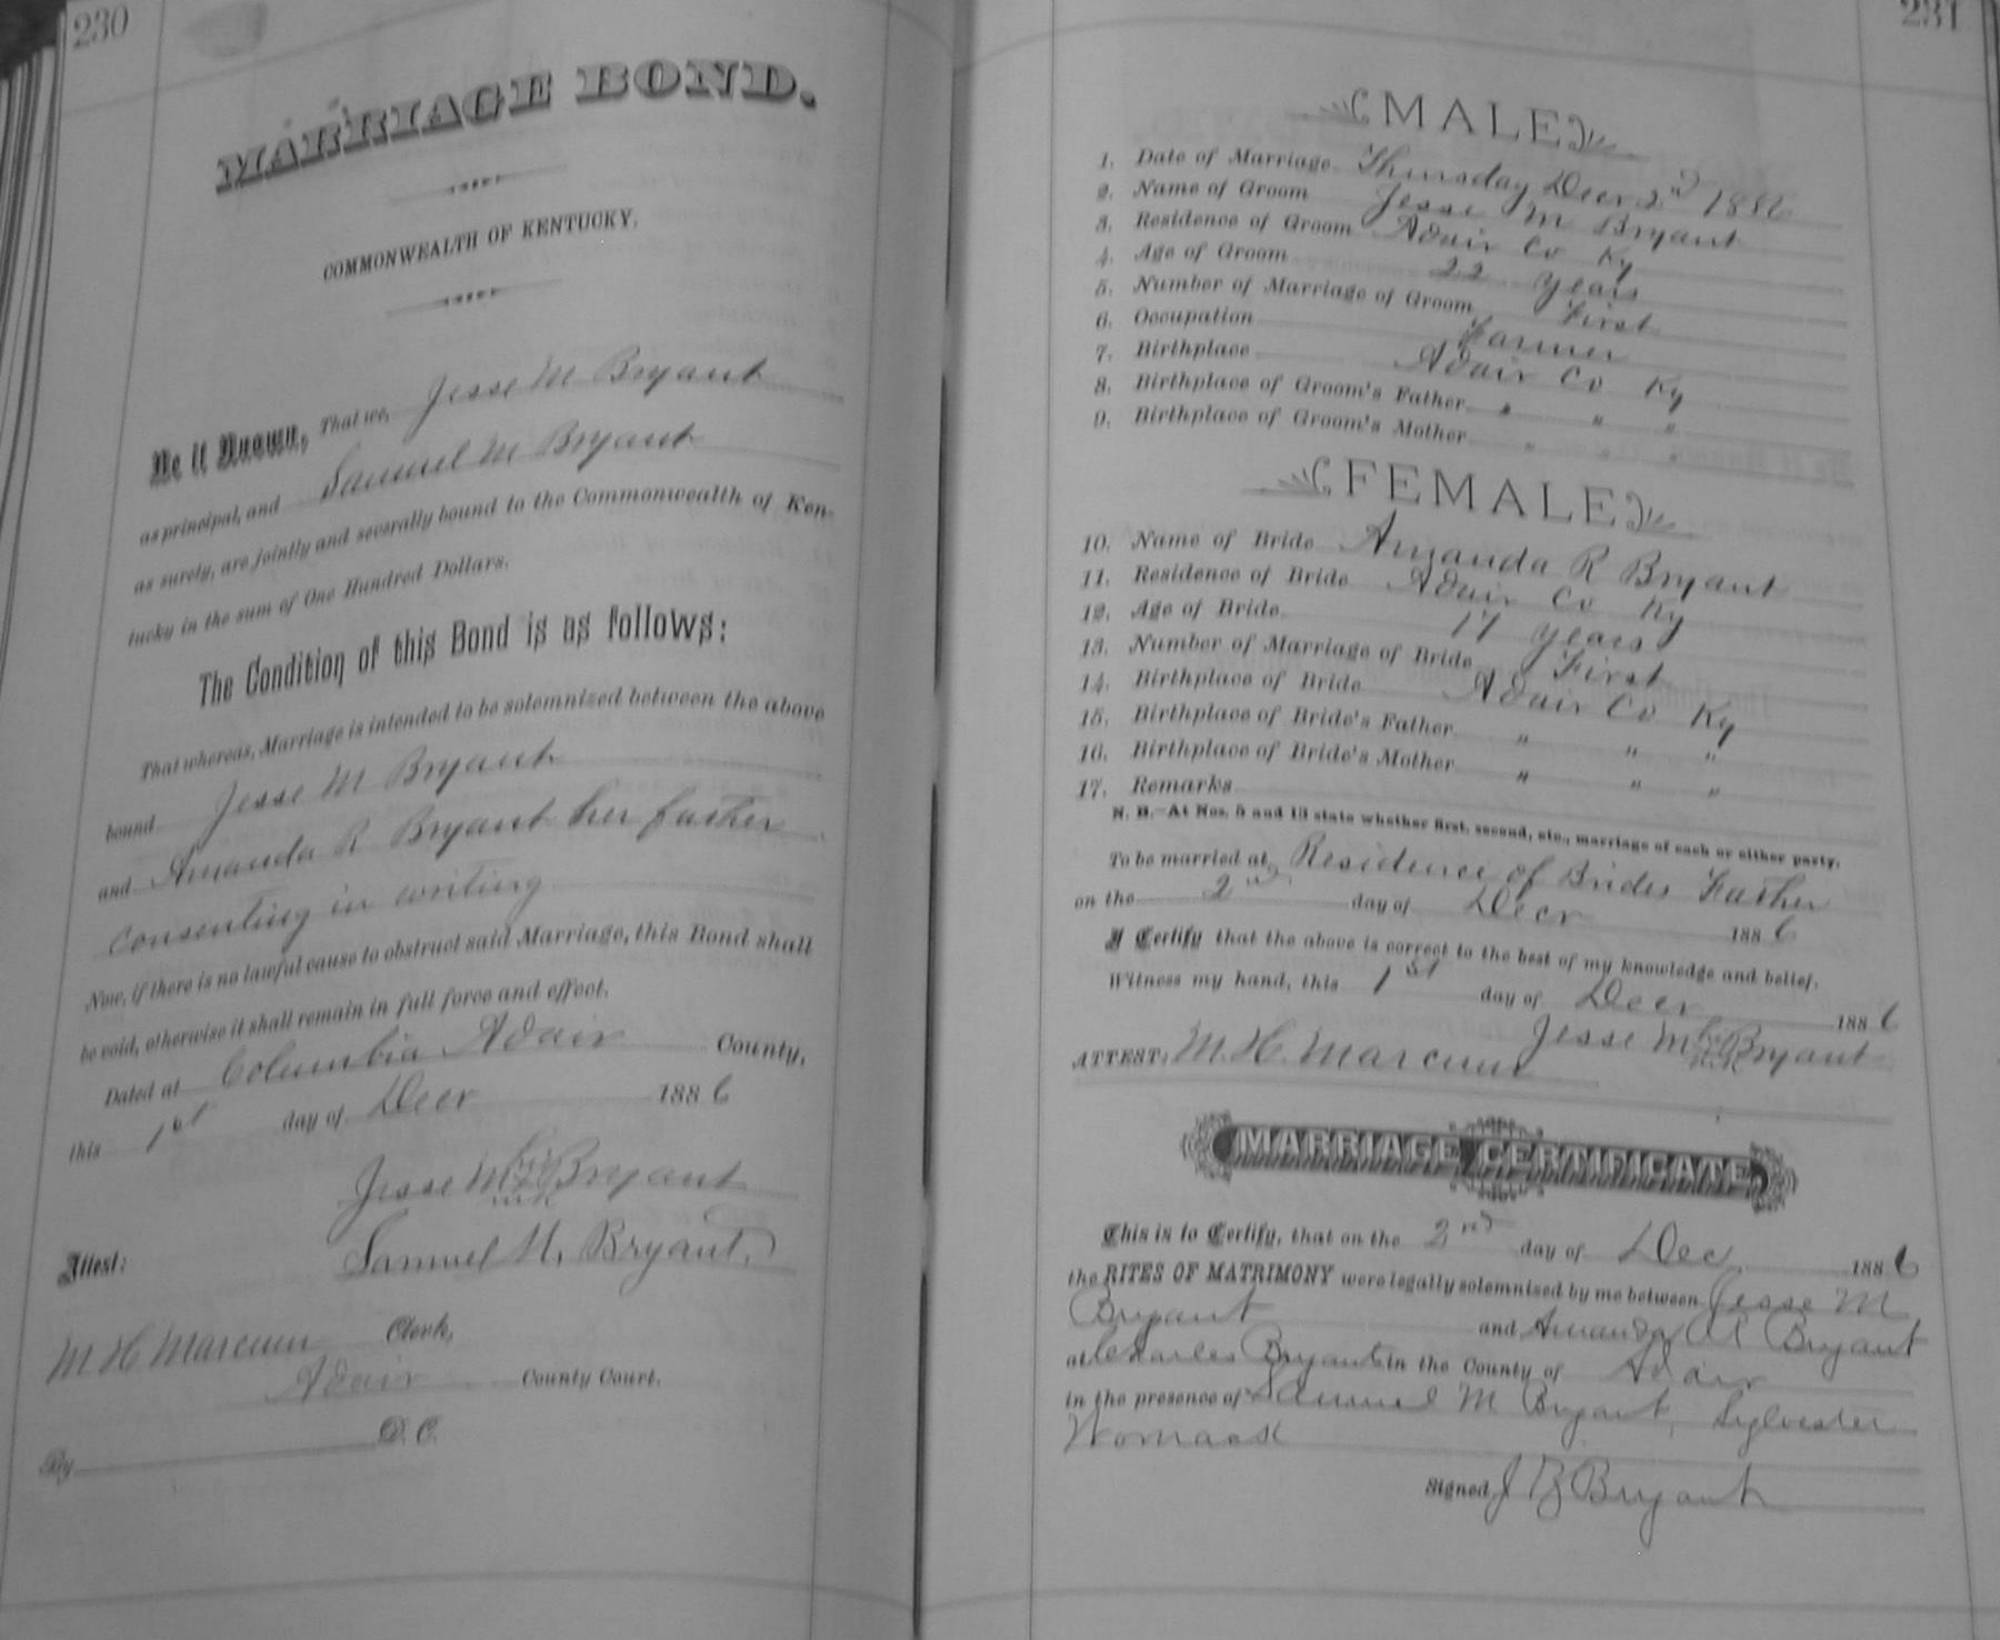 230
MARRIAGE BOND.
COMMONWEALTH OF KENTUCKY.
Be it Known, That we, Jesse M Bryant
as principal, and Samuel M Bryant
as surety, are jointly and severally bound to the Commonwealth of Ken-
tucky in the sum of One Hundred Dollars.
The Condition of this Bond is as follows:
That whereas, Marriage is intended to be solemnized between the above
bound Jesse M Bryant
and Amanda R Bryant her father
consenting in writing
Now, if there is no lawful cause to obstruct said Marriage, this Bond shall
be void, otherwise it shall remain in full force and effect.
Dated at Columbia Adair County,
this 1st day of Decr 1886
Jesse M his x mark Bryant
Samuel M. Bryant.
Attest:
M H Marcum Clerk,
Adair County Court.
By D. C.
231
MALE
1. Date of Marriage Thursday Decr 2nd 1886
2. Name of Groom Jesse M Bryant
3. Residence of Groom Adair Co Ky
4. Age of Groom 22 years
5. Number of Marriage of Groom First
6. Occupation Farmer
7. Birthplace Adair Co Ky
8. Birthplace of Groom's Father " " "
9. Birthplace of Groom's Mother " " "
FEMALE
10. Name of Bride Amanda R Bryant
11. Residence of Bride Adair Co Ky
12. Age of Bride 17 years
13. Number of Marriage of Bride First
14. Birthplace of Bride Adair Co Ky
15. Birthplace of Bride's Father " " "
16. Birthplace of Bride's Mother " " "
17. Remarks
N. B.—At Nos. 5 and 13 state whether first, second, etc., marriage of each or either party.
To be married at Residence of Brides Father
on the 2nd day of Decr 1886
I Certify that the above is correct to the best of my knowledge and belief.
Witness my hand, this 1st day of Decr 1886
Jesse M his x mark Bryant
ATTEST: M. H. Marcum
MARRIAGE CERTIFICATE
This is to Certify, that on the 2nd day of Dec 1886
the RITES OF MATRIMONY were legally solemnized by me between Jesse M
Bryant and Amanda R Bryant
at Charles Bryants in the County of Adair
in the presence of Samuel M Bryant, Sylvester
Womack
Signed J Z Bryant